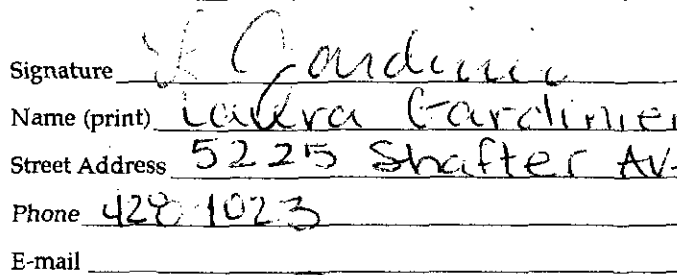 Signature L Gardinier
Name (print) Laura Gardinier
Street Address 5225 Shafter Av.
Phone 428 1023
E-mail